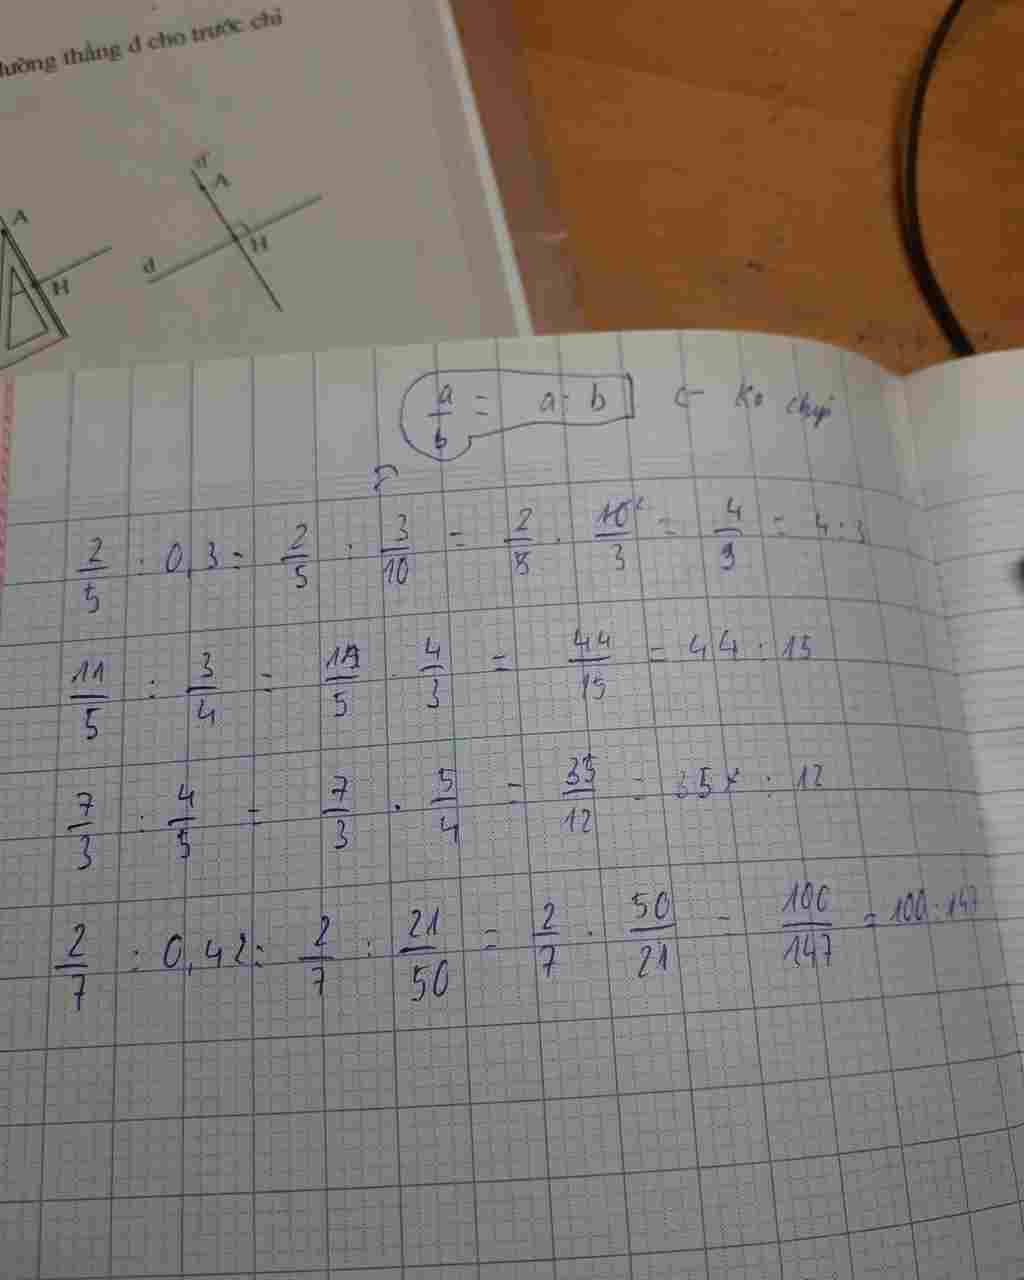 đường thẳng d cho trước chỉ
A
H
d'
A
d
H
a/b = a : b ← ko chép
2/5 : 0,3 = 2/5 : 3/10 = 2/5 . 10²/3 = 4/3 = 4 : 3
11/5 : 3/4 = 11/5 . 4/3 = 44/15 = 44 : 15
7/3 : 4/5 = 7/3 . 5/4 = 35/12 = 35 : 12
2/7 : 0,42 = 2/7 : 21/50 = 2/7 . 50/21 = 100/147 = 100 : 147